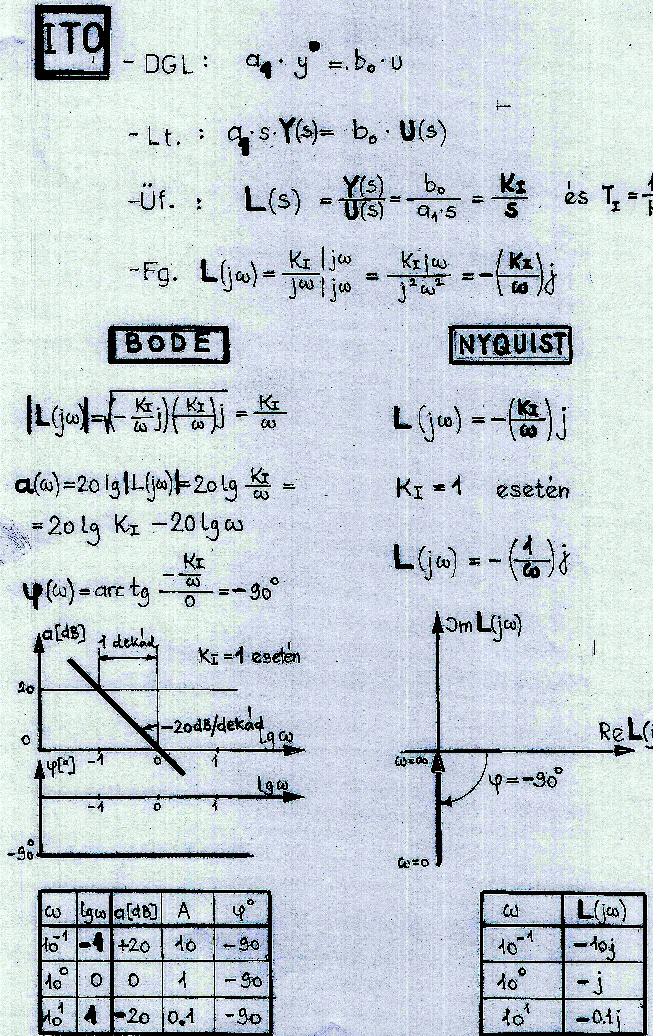 ITO
- DGL: a₁ · y• = b₀ · u
- Lt. : a₁ · s · Y(s) = b₀ · U(s)
- Üf. : L(s) = Y(s)/U(s) = b₀/(a₁·s) = K_I/s és T_I =
- Fg. L(jω) = K_I/jω | jω/jω = K_I jω/(j²ω²) = -(K_I/ω)j
BODE
|L(jω)| = √(-K_I/ω j)(K_I/ω)j = K_I/ω
a(ω) = 20 lg |L(jω)| = 20 lg K_I/ω =
= 20 lg K_I - 20 lg ω
φ(ω) = arc tg (-K_I/ω)/0 = -90°
a[dB]
1 dekád
K_I = 1 esetén
20
-20dB/dekád
lg ω
0
-1 0 1
φ[°]
lg ω
-1 0 1
-90°
ω lgω a[dB] A φ°
10⁻¹ -1 +20 10 -90
10⁰ 0 0 1 -90
10¹ 1 -20 0.1 -90
NYQUIST
L(jω) = -(K_I/ω)j
K_I = 1 esetén
L(jω) = -(1/ω)j
Jm L(jω)
Re L(j
ω=∞
φ = -90°
ω=0
ω L(jω)
10⁻¹ -10j
10⁰ -j
10¹ -0.1j